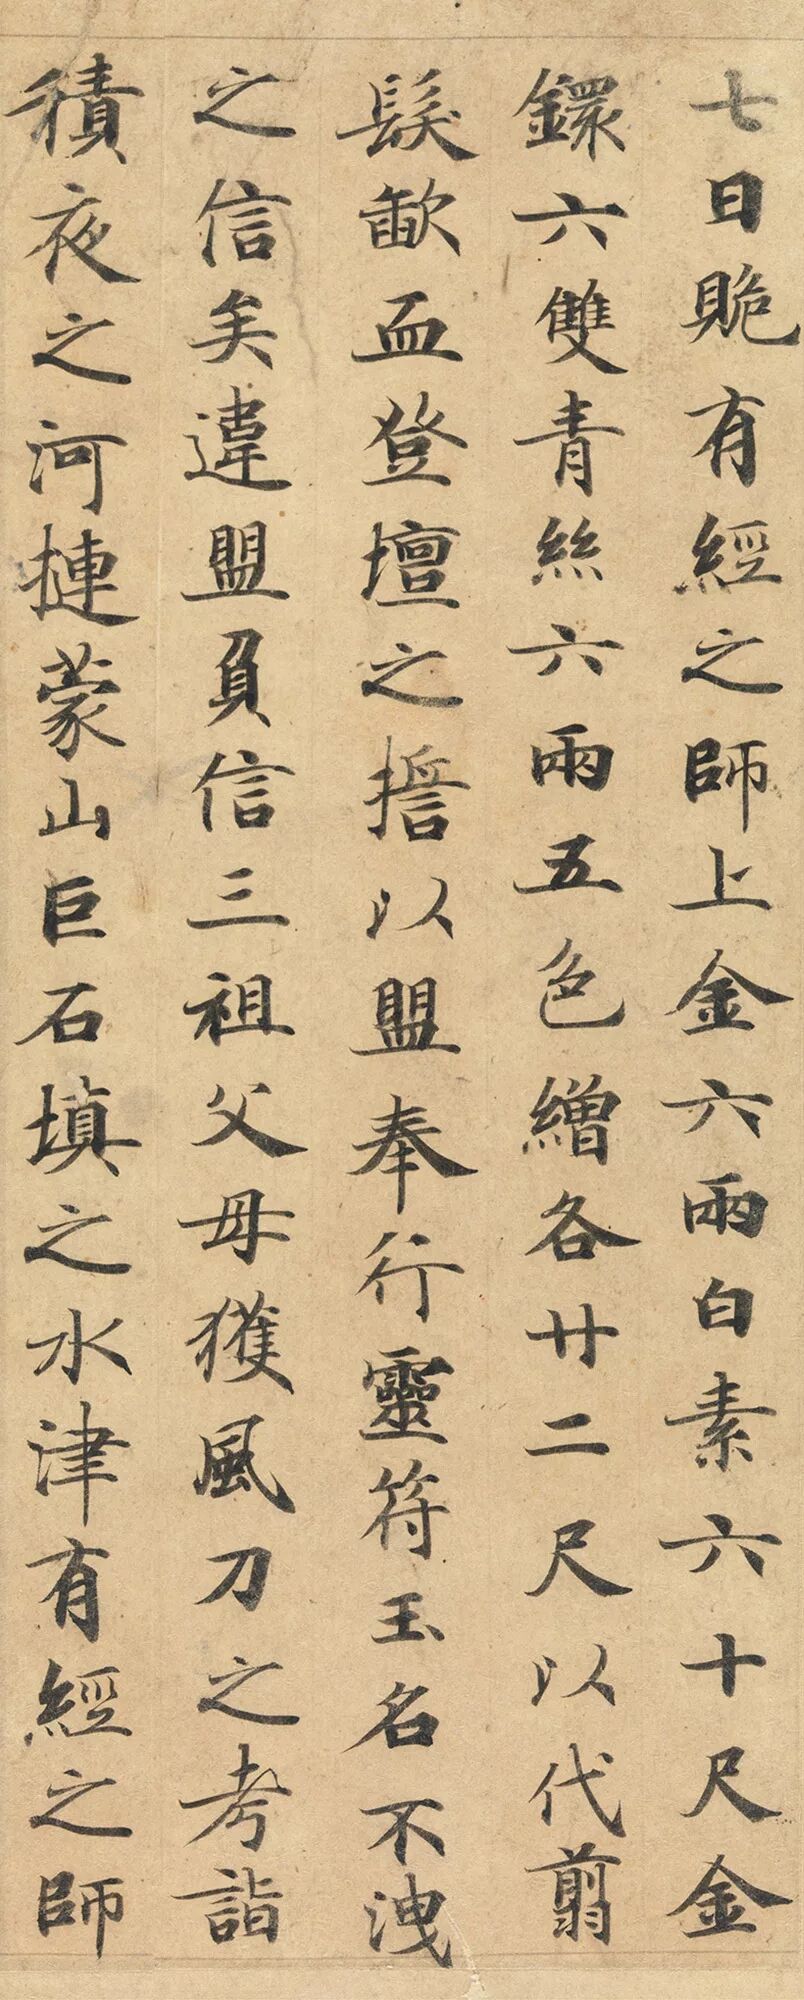 七日貽有經之師上金六兩白素六十尺金
鐶六雙青絲六兩五色繒各廿二尺以代翦
髮歃血登壇之擔以盟奉行靈符玉名不洩
之信矣違盟負信三祖父母獲風刀之考詣
積夜之河摙蒙山巨石填之水津有經之師